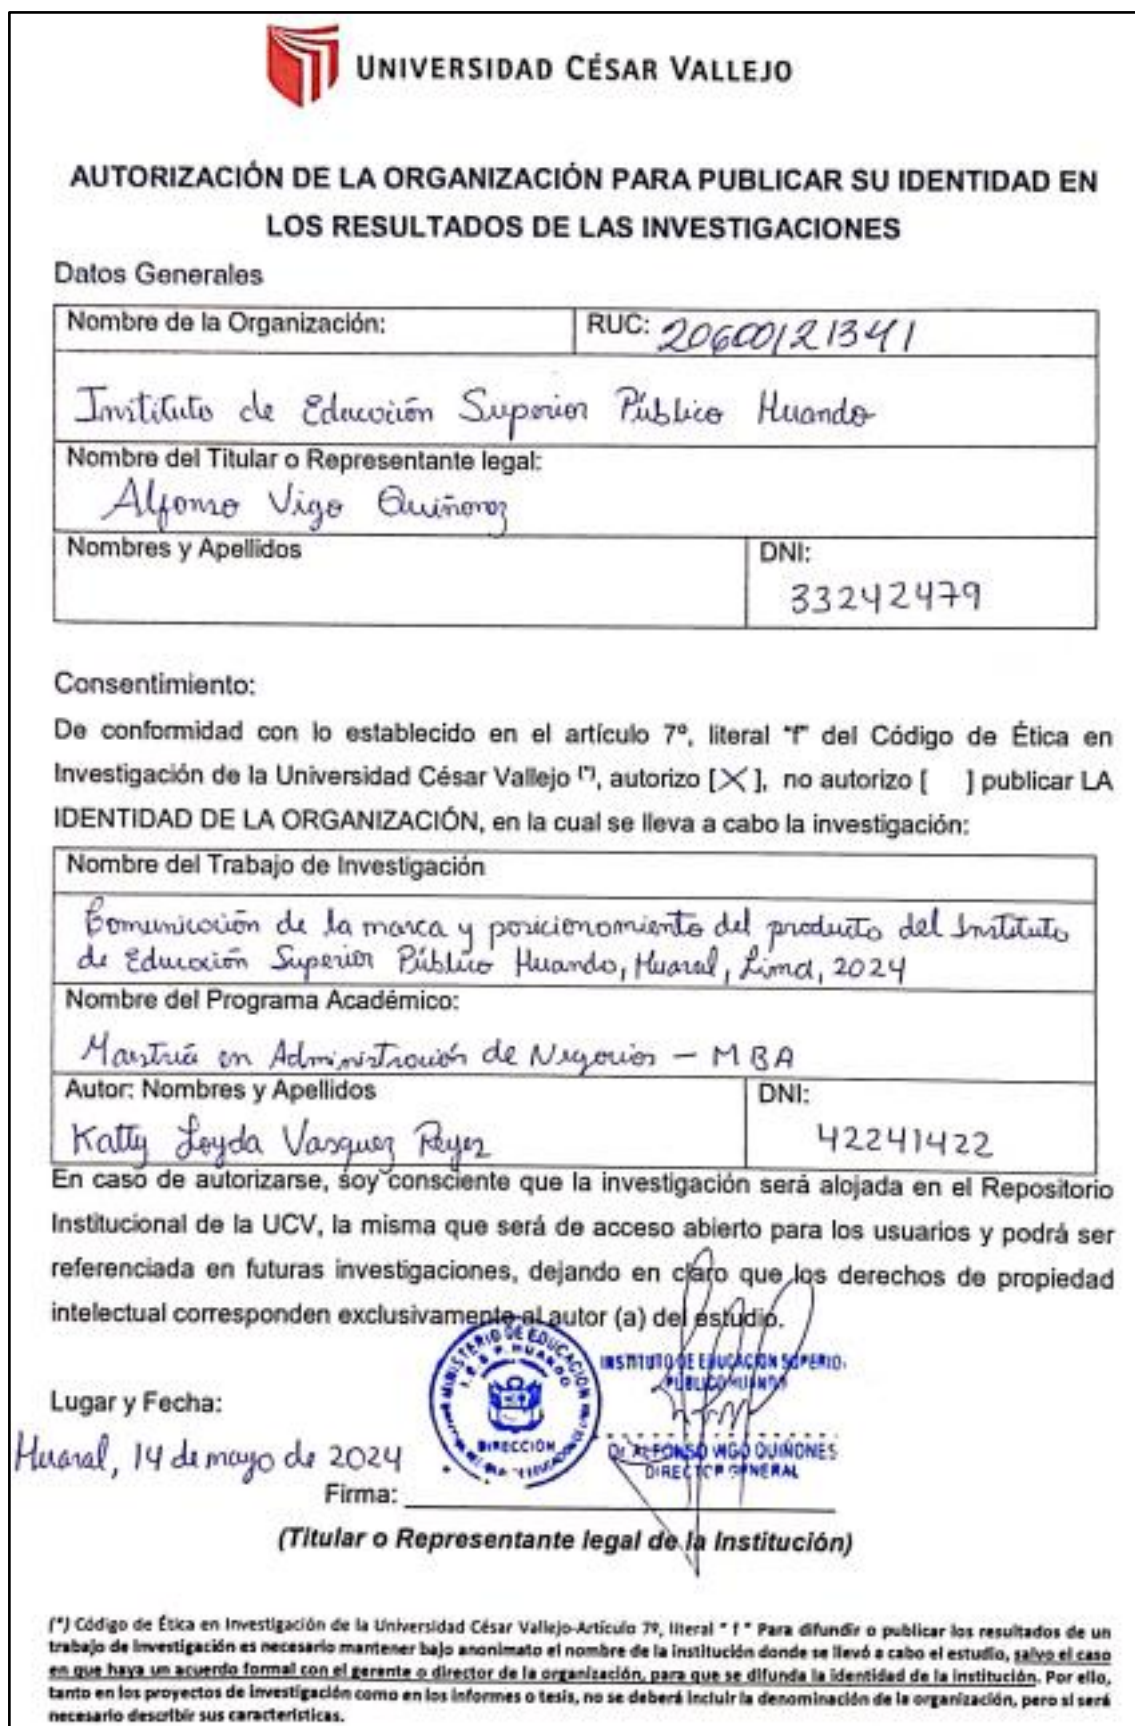 UNIVERSIDAD CÉSAR VALLEJO
AUTORIZACIÓN DE LA ORGANIZACIÓN PARA PUBLICAR SU IDENTIDAD EN
LOS RESULTADOS DE LAS INVESTIGACIONES
Datos Generales
Nombre de la Organización:
RUC: 20600121341
Instituto de Educación Superior Público Huando
Nombre del Titular o Representante legal:
Alfonso Vigo Quiñonez
Nombres y Apellidos
DNI:
33242479
Consentimiento:
De conformidad con lo establecido en el artículo 7º, literal "f" del Código de Ética en
Investigación de la Universidad César Vallejo (*), autorizo [X], no autorizo [ ] publicar LA
IDENTIDAD DE LA ORGANIZACIÓN, en la cual se lleva a cabo la investigación:
Nombre del Trabajo de Investigación
Comunicación de la marca y posicionamiento del producto del Instituto
de Educación Superior Público Huando, Huaral, Lima, 2024
Nombre del Programa Académico:
Maestría en Administración de Negocios - MBA
Autor: Nombres y Apellidos
DNI:
Katty Loyda Vasquez Reyes
42241422
En caso de autorizarse, soy consciente que la investigación será alojada en el Repositorio
Institucional de la UCV, la misma que será de acceso abierto para los usuarios y podrá ser
referenciada en futuras investigaciones, dejando en claro que los derechos de propiedad
intelectual corresponden exclusivamente al autor (a) del estudio.
MINISTERIO DE EDUCACION
I.E.S.P. HUANDO
DIRECCIÓN
INSTITUTO DE EDUCACION SUPERIO
PUBLICO HUANDO
Dr. ALFONSO VIGO QUIÑONES
DIRECTOR GENERAL
Lugar y Fecha:
Huaral, 14 de mayo de 2024
Firma:
(Titular o Representante legal de la Institución)
(*) Código de Ética en Investigación de la Universidad César Vallejo-Artículo 7º, literal " f " Para difundir o publicar los resultados de un
trabajo de investigación es necesario mantener bajo anonimato el nombre de la institución donde se llevó a cabo el estudio, salvo el caso
en que haya un acuerdo formal con el gerente o director de la organización, para que se difunda la identidad de la institución. Por ello,
tanto en los proyectos de investigación como en los informes o tesis, no se deberá incluir la denominación de la organización, pero sí será
necesario describir sus características.